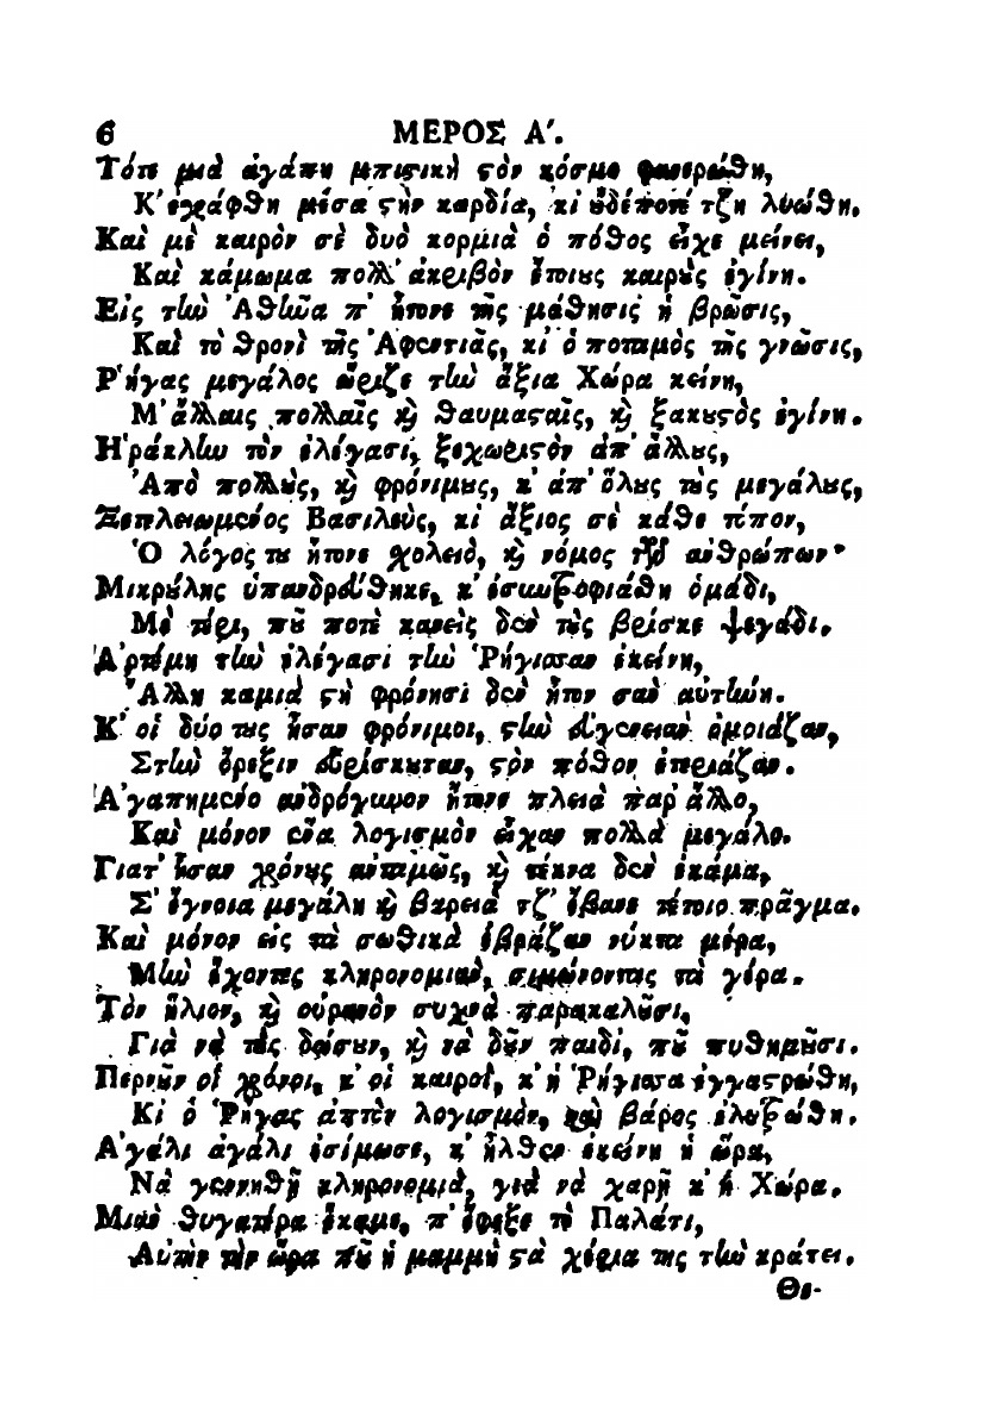 6 ΜΕΡΟΣ Α'.
Τότε μιὰ ἀγάπη μπιστικὴ στὸν κόσμο φανερώθη,
Κ' ἐγράφθη μέσα στὴν καρδία, κι οὐδέποτέ τζη λυώθη.
Καὶ μὲ καιρὸν σὲ δυὸ κορμιὰ ὁ πόθος εἶχε μείνει,
Καὶ κάμωμα πολλ' ἀκριβὸν ἔτοιους καιροὺς ἐγίνη.
Εἰς τὴν Ἀθήνα π' ἤτονε τῆς μάθησις ἡ βρῶσις,
Καὶ τὸ θρονὶ τῆς Ἀφεντιᾶς, κι' ὁ ποταμὸς τῆς γνῶσις,
Ρ'ήγας μεγάλος ὥριζε τὴν ἄξια Χώρα κείνη,
Μ' ἄλλαις πολλαῖς καὶ θαυμασταῖς, καὶ ξακουστὸς ἐγίνη.
Η'ράκλην τὸν ἐλέγασι, ξεχωριστὸν ἀπ' ἄλλους,
Ἀπὸ πολλοὺς, καὶ φρόνιμους, κ' ἀπ' ὅλους τοὺς μεγάλους,
Ξετελειωμένος Βασιλεὺς, κι ἄξιος σὲ κάθε τόπον,
Ὁ λόγος του ἤτονε χολειὸ, καὶ νόμος τῶν ἀνθρώπων·
Μικρούλης ὑπανδρεύθηκε, κ' ἐσυντροφιάσθη ὁμάδι,
Μὲ ταίρι, ποῦ ποτὲ κανεὶς δὲν τοὺς βρίσκε ψεγάδι.
Α'ρτέμη τὴν ἐλέγασι τὴν Ῥήγισσαν ἐκείνη,
Ἄλλη καμιὰ στὴ φρόνησι δὲν ἦτον σὰν αὐτήνη.
Κ' οἱ δύο τους ἦσαν φρόνιμοι, στὴν εὐγένειαν ὁμοιάζαν,
Στὴν ὄρεξιν εὑρίσκουταν, στὸν πόθον ἐτεριάζαν.
Α'γαπημένο ανδρόγυνον ἤτονε πλειὰ παρ' ἄλλο,
Καὶ μόνον ἕνα λογισμὸν εἶχαν πολλὰ μεγάλο.
Γιατ' ἦσαν χρόνους ἀνταμῶς, καὶ τέκνα δὲν ἐκάμα,
Σ' ἔγνοια μεγάλη καὶ βαρειὰ τζ' ἔβανε τέτοιο πρᾶγμα.
Καὶ μόνον εἰς τὰ σωθικὰ ἐβράζαν νύκτα μέρα,
Μὴν ἔχοντες κληρονομιὰν, σιμώνοντας τὰ γέρα.
Τὸν ἥλιον, καὶ οὐρανὸν συχνὰ παρακαλοῦσι,
Γιὰ νὰ τὲς δώσουν, καὶ νὰ δοῦν παιδὶ, ποῦ πυθημοῦσι.
Περνοῦν οἱ χρόνοι, κ' οἱ καιροὶ, κ' ἡ Ῥήγισσα ἐγγαστρώθη,
Κι ὁ Ῥήγας ἀπτὸν λογισμὸν, καὶ βάρος ἐλυτρώθη.
Α'γάλι ἀγάλι ἐσίμωσε, κ' ἦλθεν ἐκείνη ἡ ὥρα,
Νὰ γεννηθῇ κληρονομιὰ, γιὰ νὰ χαρῇ κ' ἡ Χώρα.
Μιὰν θυγατέρα ἔκαμε, π' ἔφεξε τὸ Παλάτι,
Αὐτὴν τὴν ὥρα ποῦ ἡ μαμμὴ στὰ χέρια της τὴν κράτει.
Θε-